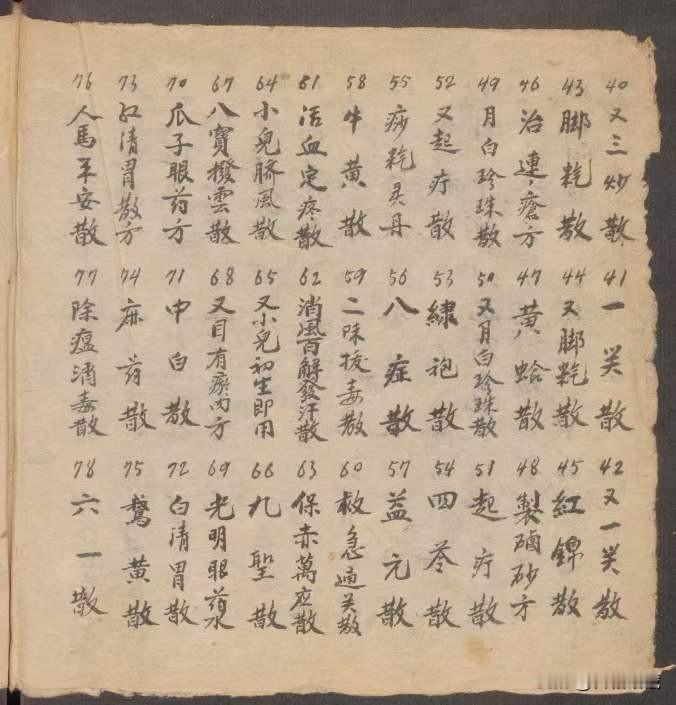 40 又三炒散
41 一关散
42 又一关散
43 脚乾散
44 又脚乾散
45 紅錦散
46 治連瘡方
47 黄蛤散
48 製硇砂方
49 月白珍珠散
50 又月白珍珠散
51 起疔散
52 又起疔散
53 繡袍散
54 四苓散
55 痧乾灵丹
56 八症散
57 益元散
58 牛黄散
59 二味拔毒散
60 救急通关散
61 活血定疼散
62 消風百解發汗散
63 保赤萬应散
64 小兒臍風散
65 又小兒初生即用
66 九聖散
67 八寶撥雲散
68 又目有瘀肉方
69 光明眼药水
70 瓜子眼药方
71 中白散
72 白清胃散
73 红清胃散方
74 麻药散
75 鵞黄散
76 人馬平安散
77 除瘟消毒散
78 六一散